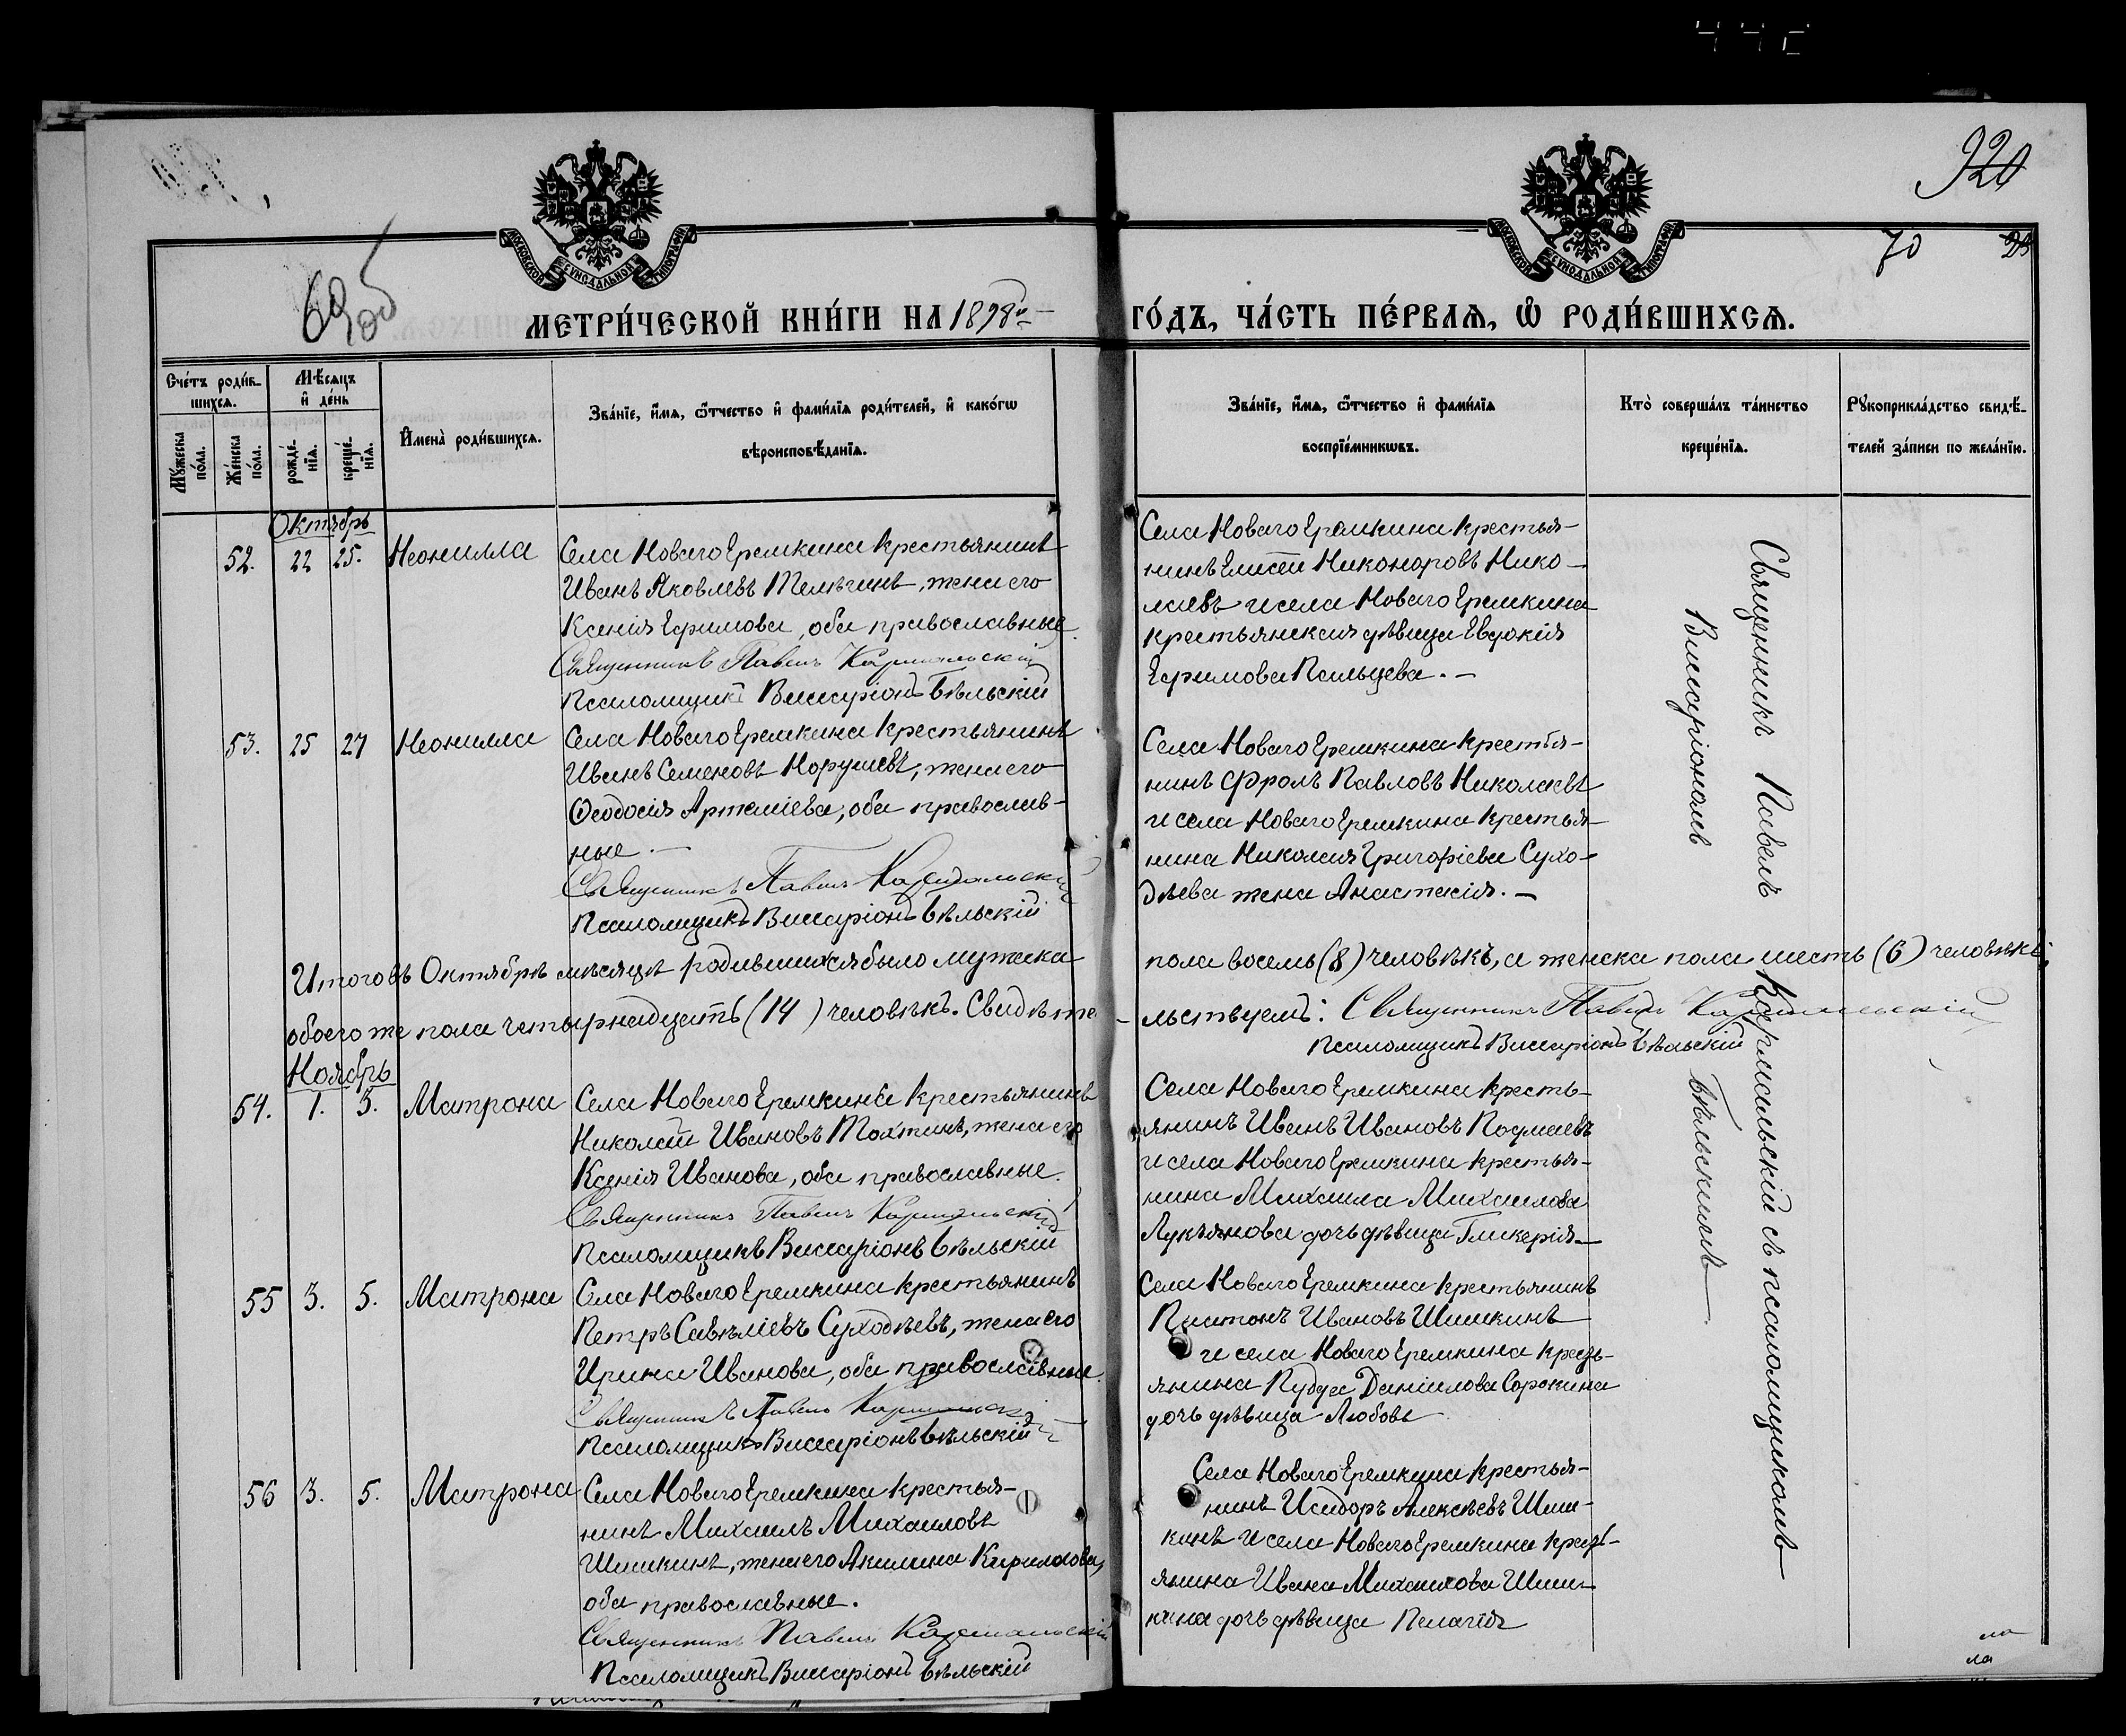 920
70
69об
МОСКОВСКОЙ СѴНОДАЛЬНОЙ ТИПОГРАФІИ
МОСКОВСКОЙ СѴНОДАЛЬНОЙ ТИПОГРАФІИ
МЕТРИ́ЧЕСКОЙ КНИ́ГИ НА 1898й ГО́ДЪ, ЧА́СТЬ ПЕ́РВАѦ, Ѡ҆ РОДИ́ВШИХСѦ.
Сче́тъ роди́в-
шихсѧ.
Мѣ́сѧцъ
и҆ де́нь
Мꙋ́жеска
по́ла.
Же́нска
по́ла.
рожде́-
нїѧ.
креще́-
нїѧ.
И҆мена̀ роди́вшихсѧ.
Зва́нїе, и҆́мѧ, ѻ҆́тчество и҆ фами́лїѧ роди́телей, и҆ како́гѡ
вѣроисповѣ́данїѧ.
Зва́нїе, и҆́мѧ, ѻ҆́тчество и҆ фами́лїѧ
воспрїе́мникѡвъ.
Кто̀ соверша́лъ та́инство
креще́нїѧ.
Рꙋкоприкла́дство свидѣ́-
телей за́писи по жела́нїю.
Октябрь
52. 22 25. Неонилла
Села Новаго Еремкина крестьянинъ
Иванъ Яковлевъ Телѣгинъ, жена его
Ксенія Ефимова, оба православные.
Священникъ Павелъ Кармальскій
Псаломщикъ Виссаріонъ Бѣльскій
Села Новаго Еремкина крестья-
нинъ Елисей Никоноровъ Нико-
лаевъ и села Новаго Еремкина
крестьянская дѣвица Евдокія
Ефимова Пальцева. —
53. 25 27 Неонилла
Села Новаго Еремкина крестьянинъ
Иванъ Семеновъ Норушевъ, жена его
Ѳеодосія Артеміева, оба православ-
ные. —
Священникъ Павелъ Кармальскій
Псаломщикъ Виссаріонъ Бѣльскій
Села Новаго Еремкина крестья-
нинъ Фролъ Павловъ Николаевъ
и села Новаго Еремкина крестья-
нина Николая Григоріева Сухо-
дѣева жена Анастасія. —
Итого въ Октябрѣ мѣсяцѣ родившихся было мужска пола восемь (8) человѣкъ, а женска пола шесть (6) человѣкъ;
обоего же пола четырнадцать (14) человѣкъ. Свидѣте-льствуемъ: Священникъ Павелъ Кармальскій
Псаломщикъ Виссаріонъ Бѣльскій
Ноябрь
54. 1. 3. Матрона
Села Новаго Еремкина крестьянинъ
Николай Ивановъ Тохтинъ, жена его
Ксенія Иванова, оба православные.
Священникъ Павелъ Кармальскій
Псаломщикъ Виссаріонъ Бѣльскій
Села Новаго Еремкина кресть-
янинъ Иванъ Ивановъ
и села Новаго Еремкина крестья-
нина Михаила Михаилова
Лукьянова дочь дѣвица Гликерія. —
55 3. 5. Матрона
Села Новаго Еремкина крестьянинъ
Петръ Савѣліевъ Суходѣевъ, жена его
Ирина Иванова, оба православные.
Священникъ Павелъ Кармальскій
Псаломщикъ Виссаріонъ Бѣльскій
Села Новаго Еремкина крестьянинъ
Платонъ Ивановъ Шишкинъ
и села Новаго Еремкина кресть-
янина Даніилова Сорокина
дочь дѣвица Любовь
56 3. 5. Матрона
Села Новаго Еремкина крестья-
нинъ Михаилъ Михаиловъ
Шишкинъ, жена его Акилина Кирилова,
оба православные.
Священникъ Павелъ Кармальскій
Псаломщикъ Виссаріонъ Бѣльскій
Села Новаго Еремкина крестья-
нинъ Исидоръ Алексѣевъ Шиш-
кинъ и села Новаго Еремкина кресть-
янина Ивана Михаилова Шиш-
кина дочь дѣвица Пелагія
Священникъ Павелъ Кармальскій съ псаломщикомъ
Виссаріономъ Бѣльскимъ —